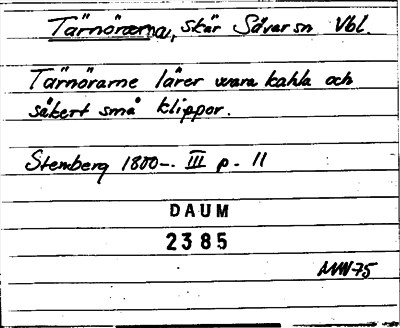 Tärnörarna, skär Sävar sn Vbl.
Tärnörarne lärer vara kahla och
säkert små klippor.
Stenberg 1800-. III p. 11
DAUM
2385
MW-75